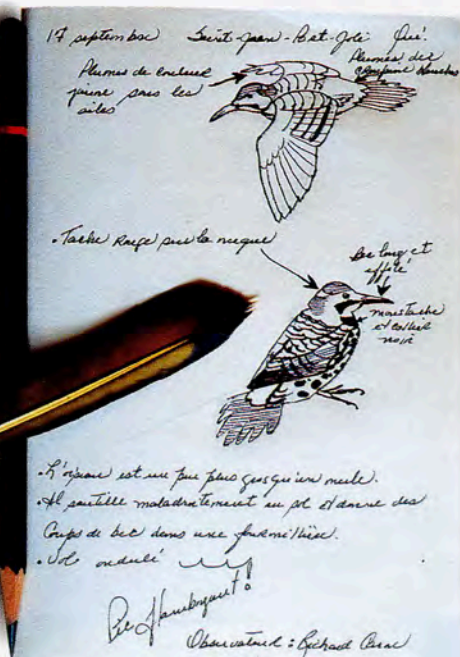 17 septembre Saint-Jean-Port-Joli Qué.
Plumes de couleur
jaune sous les
ailes
Plumes du
croupion blanches
• Tache rouge sur la nuque
Bec long et
effilé
moustache
et collier
noir
• L'oiseau est un peu plus gros qu'un merle.
• Il sautille maladroitement au sol et donne des
coups de bec dans une fourmilière.
• Vol ondulé
Pic flamboyant!
Observateur : Richard